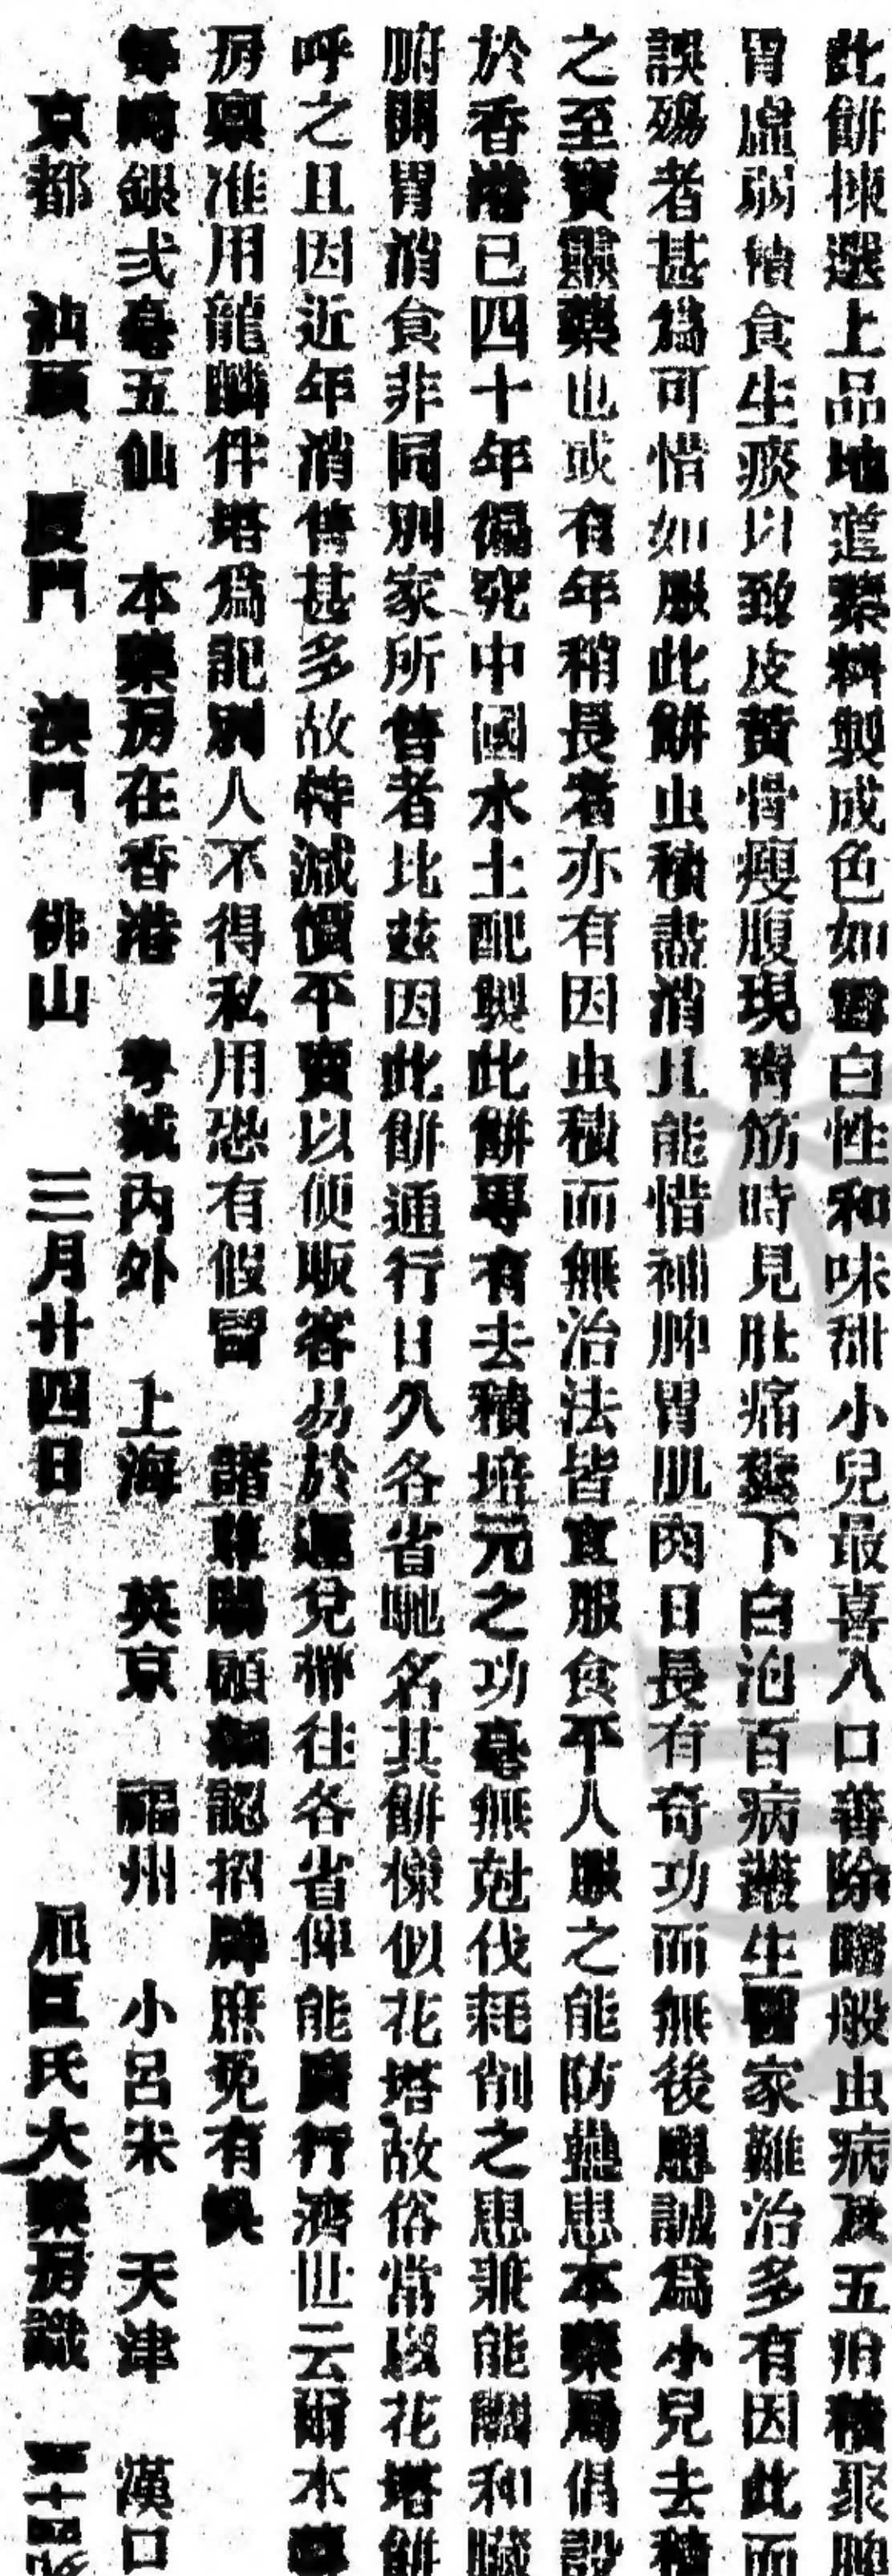 此餅揀選上品地道藥料製成色如雪白性和味甜小兒最喜入口善除諸般虫病及五疳積聚脾
胃虛弱積食生痰以致皮黃骨瘦腹現靑筋時見肚痛瀉下白泡百病叢生醫家難治多有因此而
誤殤者甚爲可惜如服此餅虫積盡消兒能惜補脾胃肌肉日長有奇功而無後患誠爲小兒去積
之至寶靈藥也或有年稍長者亦有因虫積而無治法皆宜服食平人服之能防蟲患本藥局倡設
於香港已四十年徧究中國水土配製此餅專有去積培元之功毫無尅伐耗削之患兼能調和臟
腑開胃消食非同別家所售者比茲因此餅通行日久各省馳名其餅樣似花塔故俗常以花塔餅
呼之且因近年消售甚多故特減價平賣以便販客易於運兌帶往各省俾能廣行濟世云爾本藥
房稟准用龍麟伴塔爲記別人不得私用恐有假冒 諸尊賜顧細認招牌庶免有悞
每樽銀弍毫五仙 本藥房在香港 粤城內外 上海 英京 福州 小呂宋 天津 漢口
京都 汕頭 厦門 澳門 佛山 三月廿四日 屈臣氏大藥房識